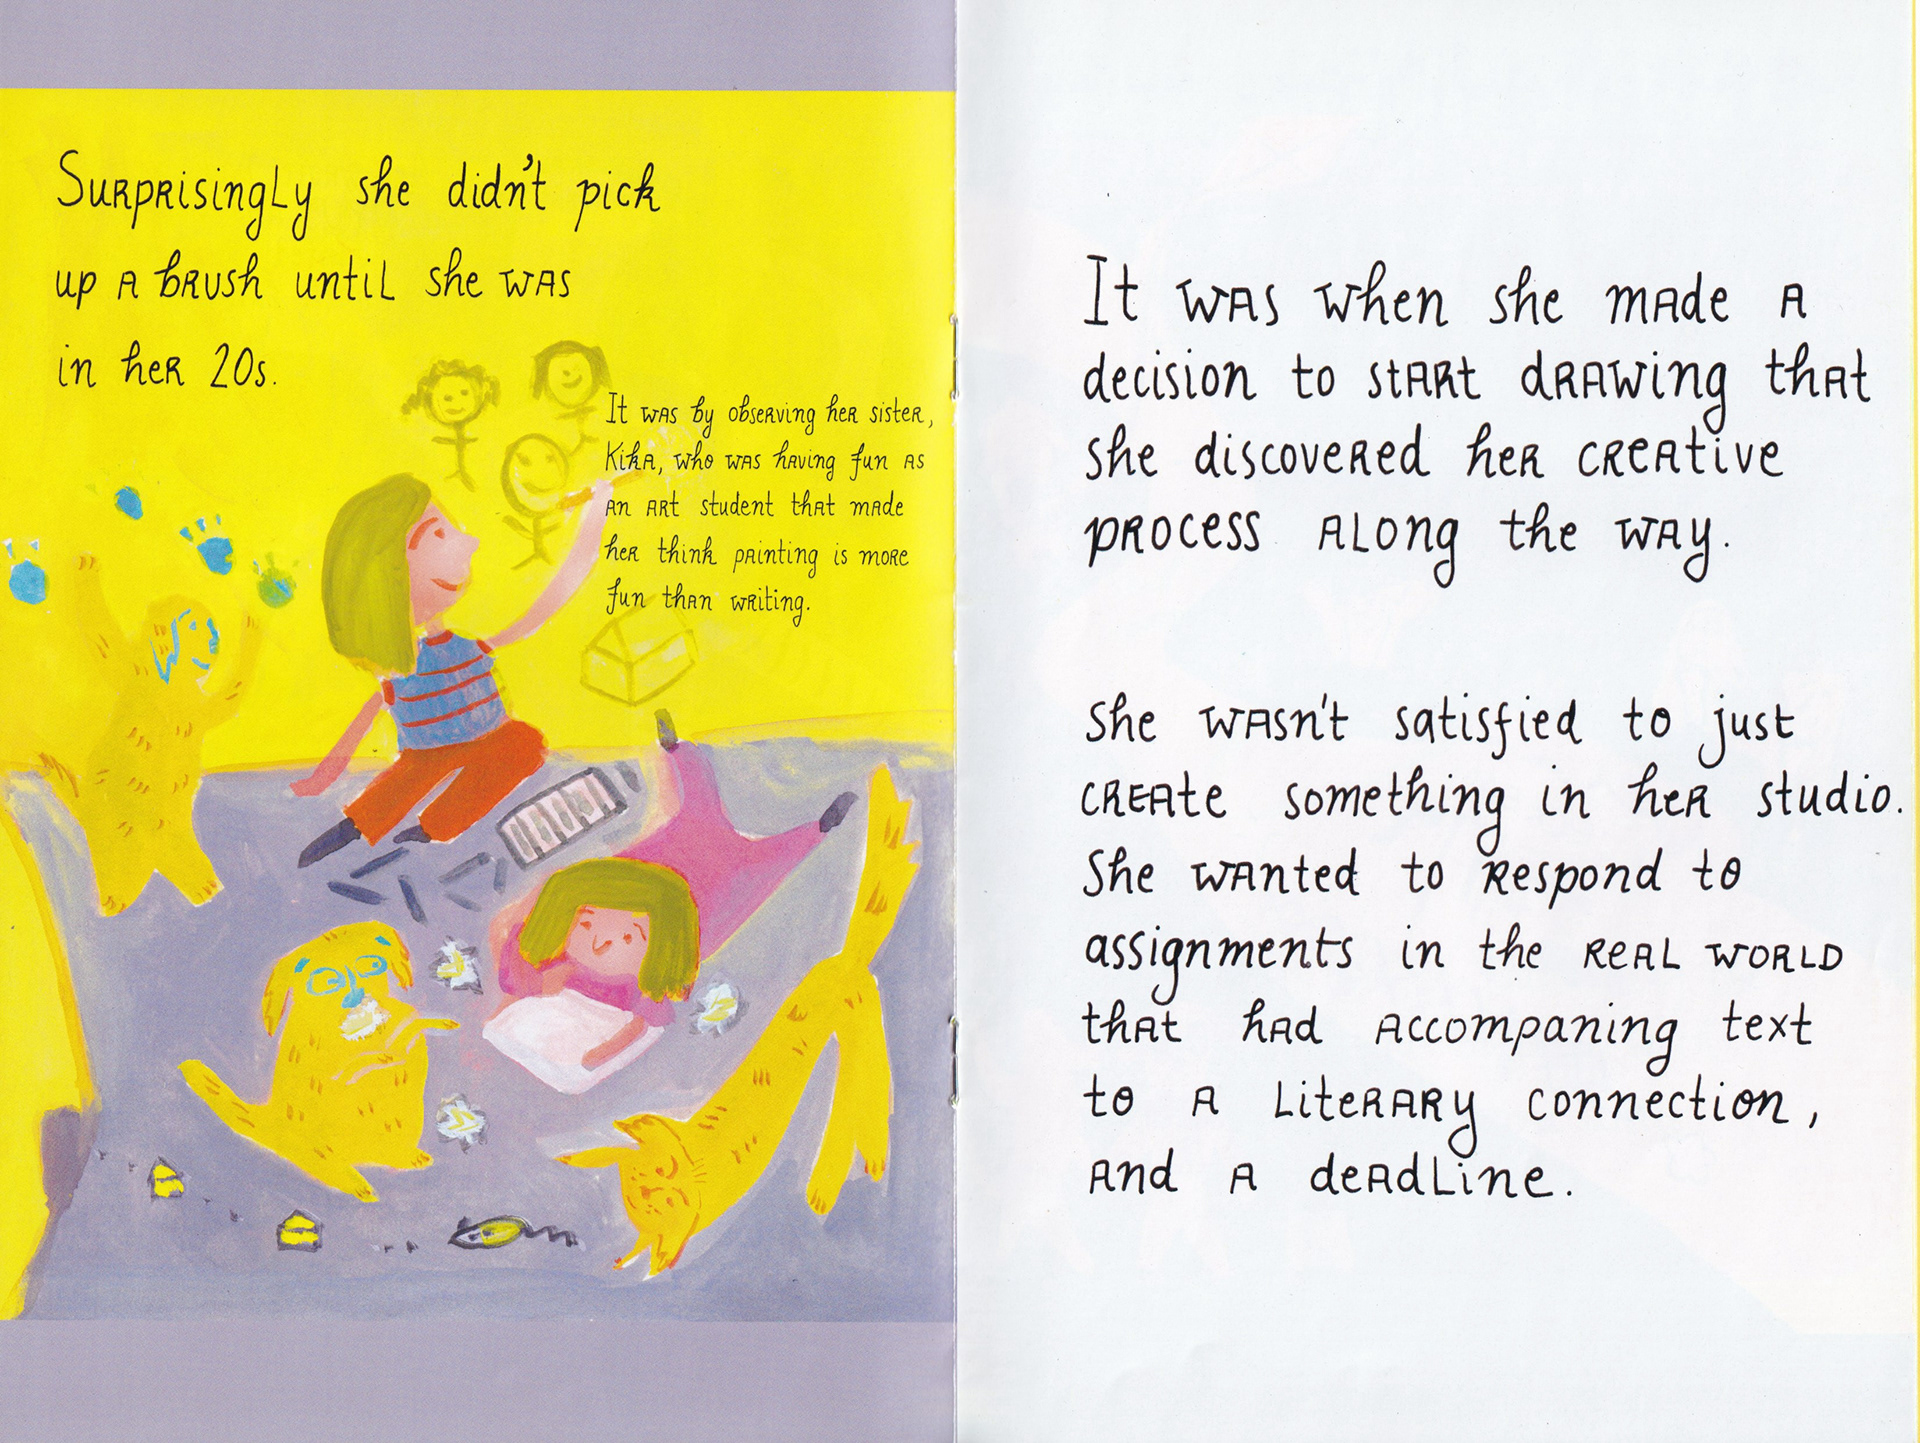 Surprisingly she didn't pick
up a brush until she was
in her 20s.
It was by observing her sister,
Kika, who was having fun as
an art student that made
her think painting is more
fun than writing.
It was when she made a
decision to start drawing that
she discovered her creative
process along the way.
She wasn't satisfied to just
create something in her studio.
She wanted to respond to
assignments in the real world
that had accompaning text
to a literary connection,
and a deadline.